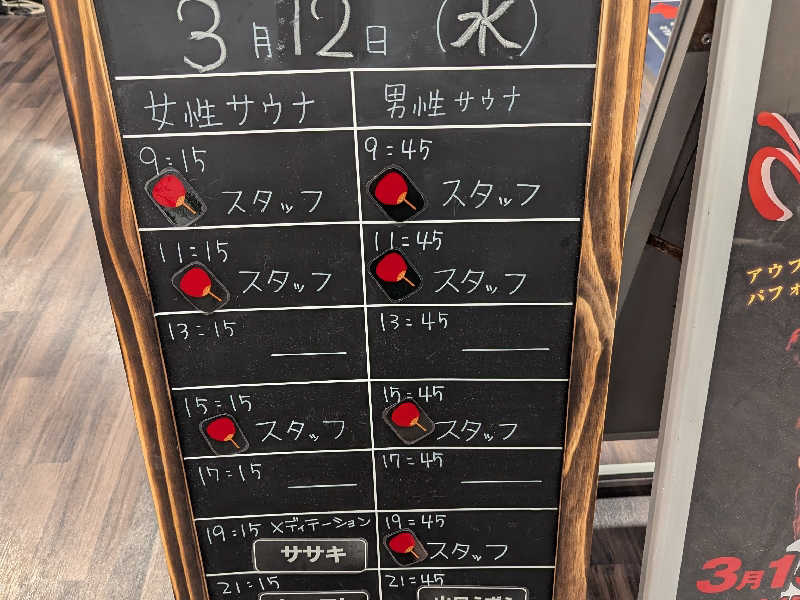 3月12日 (水)
女性サウナ 男性サウナ
9:15 9:45
スタッフ スタッフ
11:15 11:45
スタッフ スタッフ
13:15 13:45
15:15 15:45
スタッフ スタッフ
17:15 17:45
19:15 メディテーション 19:45
ササキ スタッフ
21:15 21:45
アウフ
パフォ
3月1